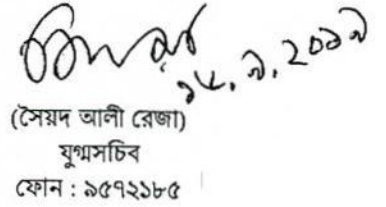 ১৫.৯.২০১৯
(সৈয়দ আলী রেজা)
যুগ্মসচিব
ফোন : ৯৫৭২১৮৫